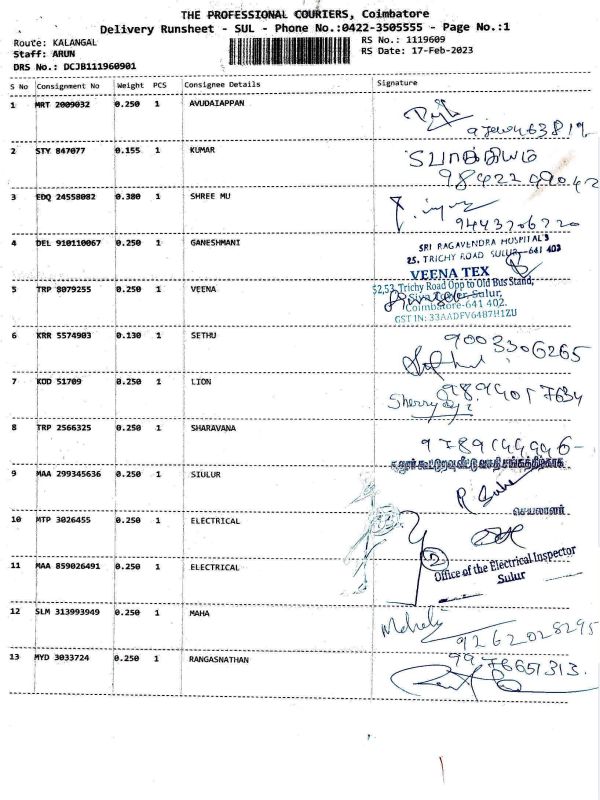 THE PROFESSIONAL COURIERS, Coimbatore
Delivery Runsheet - SUL - Phone No.:0422-3505555 - Page No.:1
Route: KALANGAL
RS No.: 1119609
Staff: ARUN
RS Date: 17-Feb-2023
DRS No.: DCJB111960901
S No Consignment No Weight PCS Consignee Details Signature
1 MRT 2009032 0.250 1 AVUDAIAPPAN
2 STY 847077 0.155 1 KUMAR
3 EDQ 24558082 0.380 1 SHREE MU
9443706720
4 DEL 910110067 0.250 1 GANESHMANI
SRI RAGAVENDRA HOSPITAL'S
25, TRICHY ROAD SULUR-641 402
VEENA TEX
5 TRP 8079255 0.250 1 VEENA
52,53, Trichy Road Opp to Old Bus Stand,
Sulur,
Coimbatore-641 402.
GST IN: 33AADFV6487H1ZU
6 KRR 5574903 0.130 1 SETHU
9003306265
7 KOD 51709 0.250 1 LION
Sherry
8 TRP 2566325 0.250 1 SHARAVANA
9 MAA 299345636 0.250 1 SIULUR
செயலாளர்
10 MTP 3026455 0.250 1 ELECTRICAL
11 MAA 859026491 0.250 1 ELECTRICAL
2
Office of the Electrical Inspector
Sulur
12 SLM 313993949 0.250 1 MAHA
9262028295
13 MYD 3033724 0.250 1 RANGASNATHAN
9976651313.